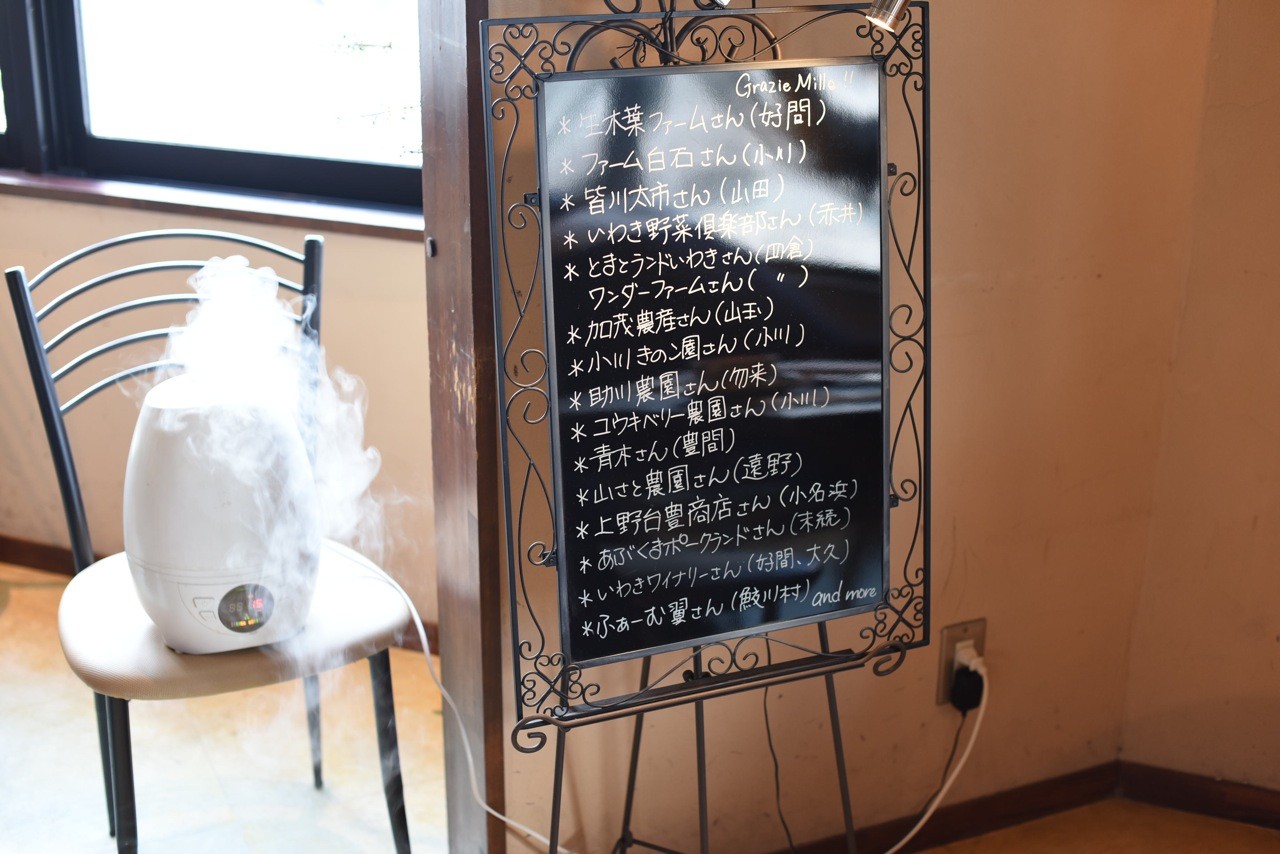 Grazie Mille!!
*生木葉ファームさん(好間)
*ファーム白石さん(小川)
*皆川太市さん(山田)
*いわき野菜倶楽部さん(赤井)
*とまとランドいわきさん(四倉)
ワンダーファームさん( 〃 )
*加茂農産さん(山玉)
*小川きのこ園さん(小川)
*助川農園さん(勿来)
*ユウキベリー農園さん(小川)
*青木さん(豊間)
*山さと農園さん(遠野)
*上野台豊商店さん(小名浜)
*あぶくまポークランドさん(末続)
*いわきワイナリーさん(好間、大久)
*ふぁーむ翼さん(鮫川村) and more